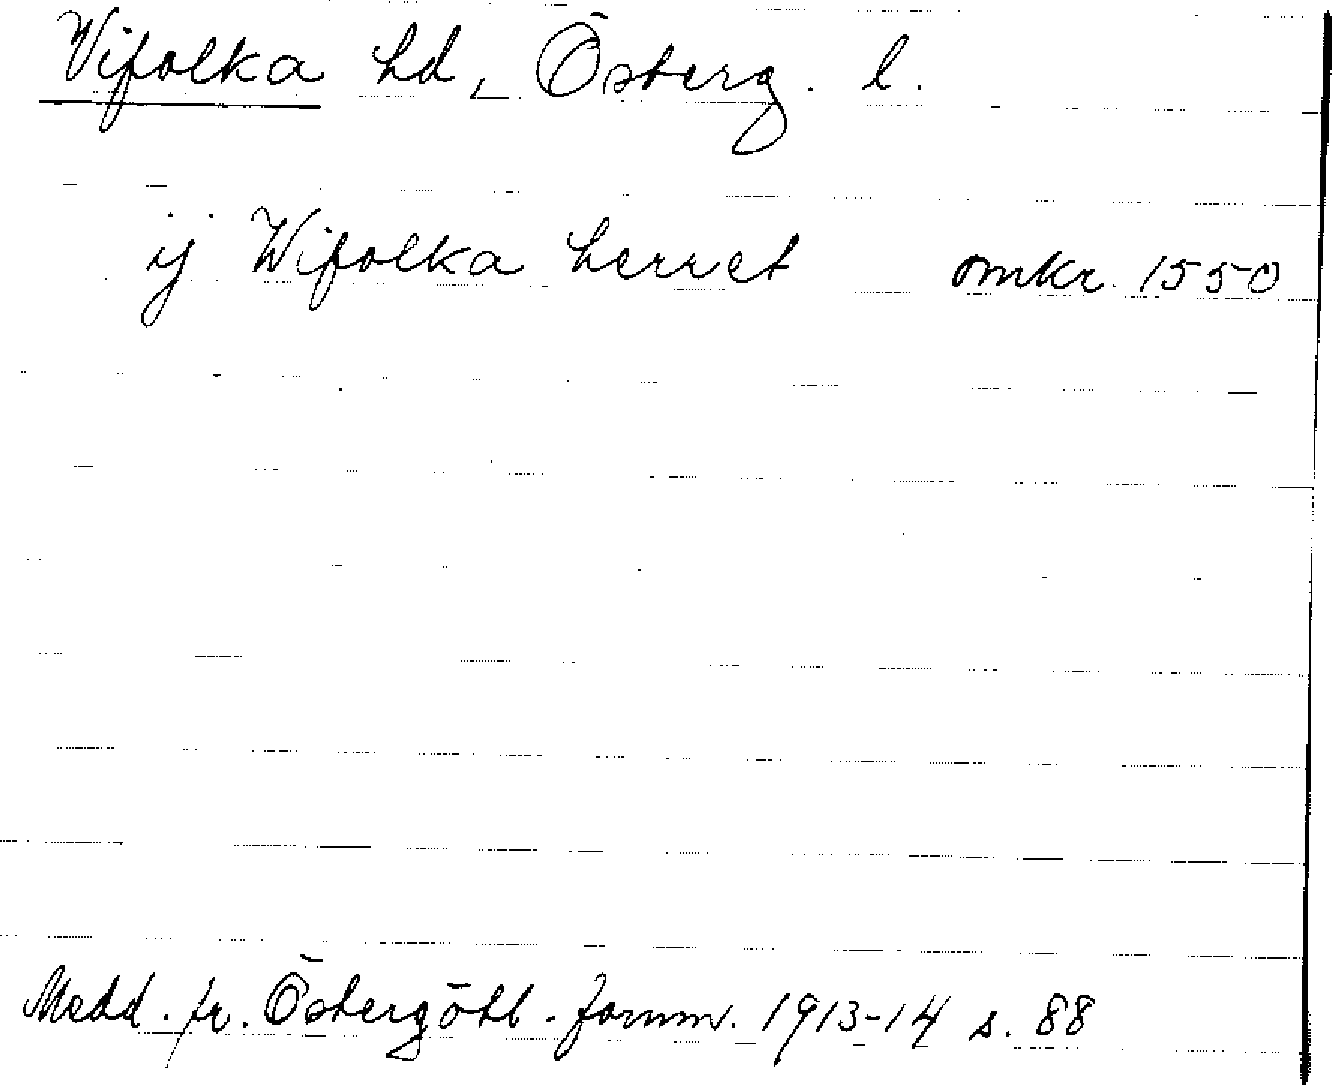 Vifolka hd, Österg. l.
ij Wifolka herret omkr. 1550
Medd. fr. Östergötl. fornm. 1913-14 s. 88